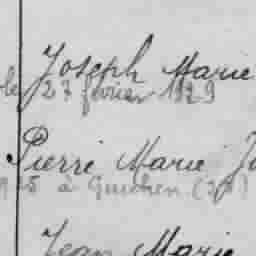 Joseph Marie
le 27 février 1929
Pierre Marie
à Guichen (
Jean Marie